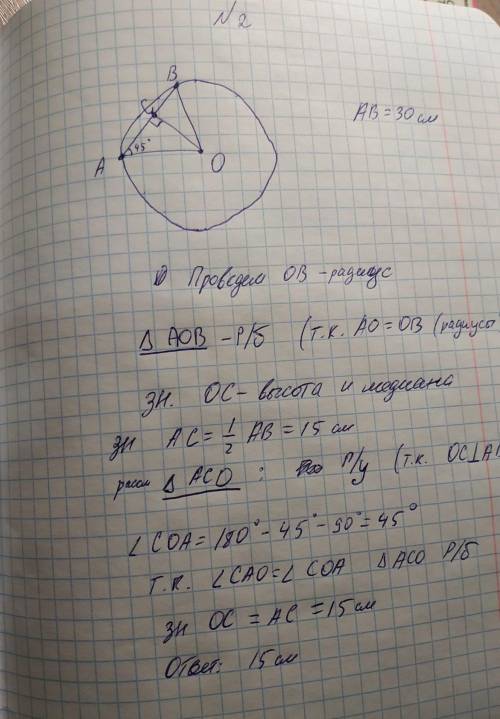 N 2
B
C
AB = 30 см
A
45°
O
Проведем OB - радиус
Δ AOB - Р/б (т.к. AO = OB (радиусы
зн. OC - высота и медиана
зн AC = 1/2 AB = 15 см
рассм Δ ACO : Р/у (т.к. OC⊥A
∠COA = 180° - 45° - 90° = 45°
т.к. ∠CAO = ∠COA Δ ACO Р/б
зн OC = AC = 15 см
Ответ: 15 см